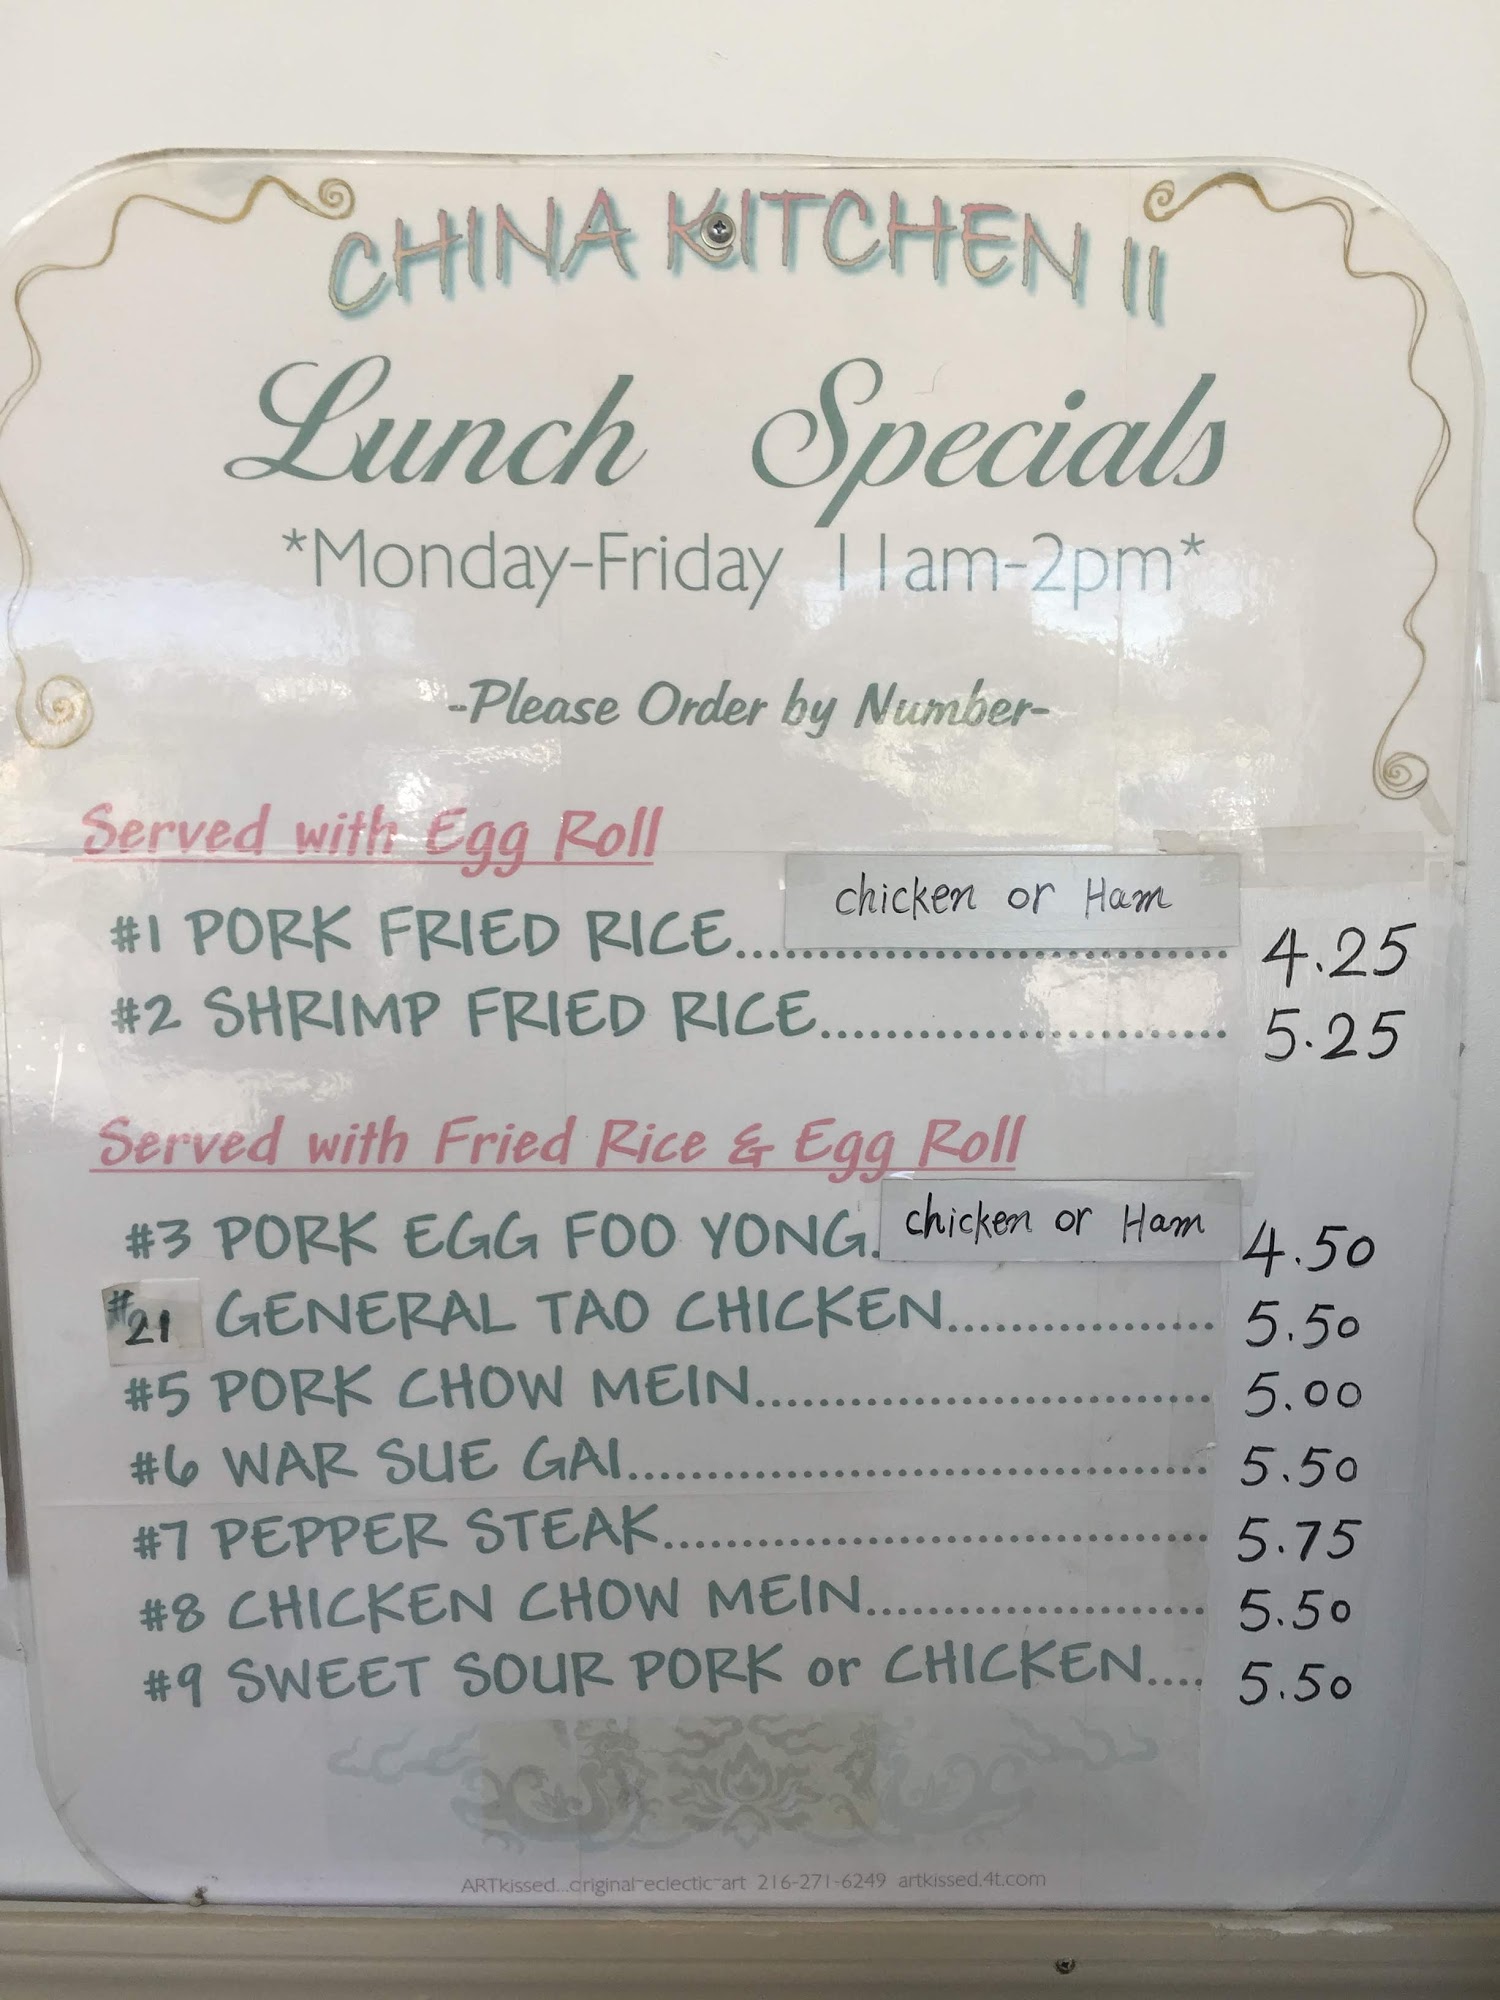 CHINA KITCHEN II
Lunch Specials
*Monday-Friday 11am-2pm*
-Please Order by Number-
Served with Egg Roll
chicken or Ham
#1 PORK FRIED RICE................................ 4.25
#2 SHRIMP FRIED RICE.............................. 5.25
Served with Fried Rice & Egg Roll
#3 PORK EGG FOO YONG. chicken or Ham 4.50
#21 GENERAL TAO CHICKEN.................... 5.50
#5 PORK CHOW MEIN.................................. 5.00
#6 WAR SUE GAI........................................... 5.50
#7 PEPPER STEAK........................................ 5.75
#8 CHICKEN CHOW MEIN......................... 5.50
#9 SWEET SOUR PORK or CHICKEN.... 5.50
ARTkissed...original~eclectic~art 216-271-6249 artkissed.4t.com